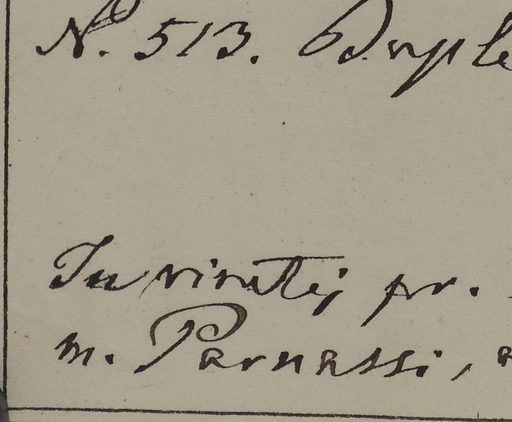 N. 513. Buple
In vinetis pr.
m. Parnassi, a